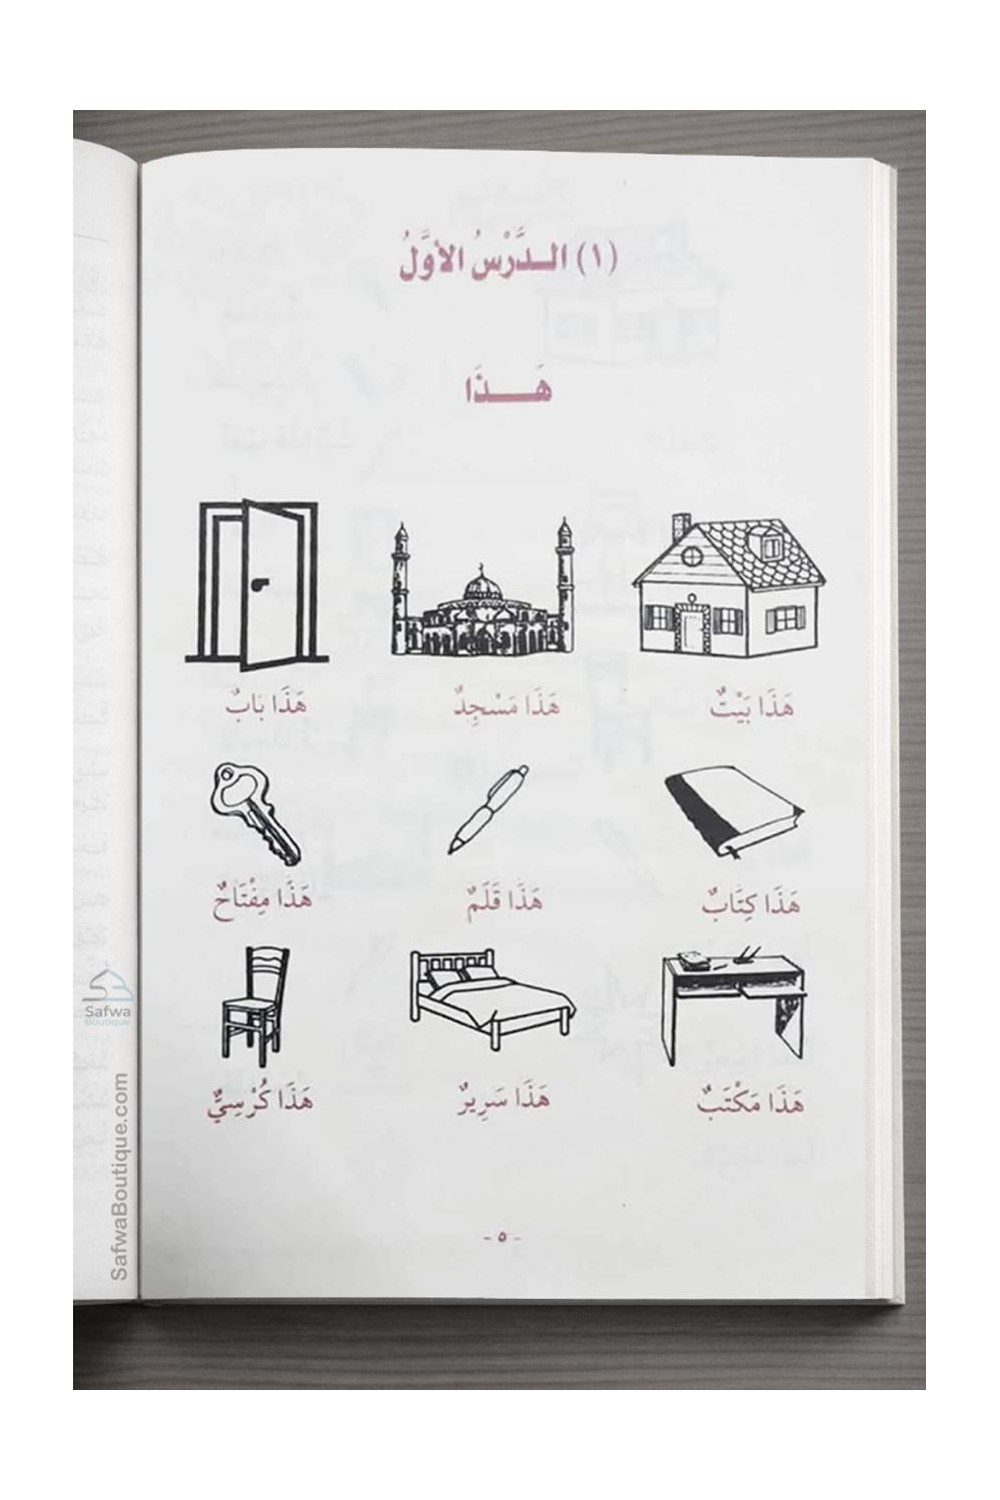 (١) الــدَّرْسُ الأوَّلُ
هَـــذَا
هَذَا بَيْتٌ
هَذَا مَسْجِدٌ
هَذَا بَابٌ
هَذَا كِتَابٌ
هَذَا قَلَمٌ
هَذَا مِفْتَاحٌ
هَذَا مَكْتَبٌ
هَذَا سَرِيرٌ
هَذَا كُرْسِيٌّ
- ٥ -
Safwa
Boutique
SafwaBoutique.com